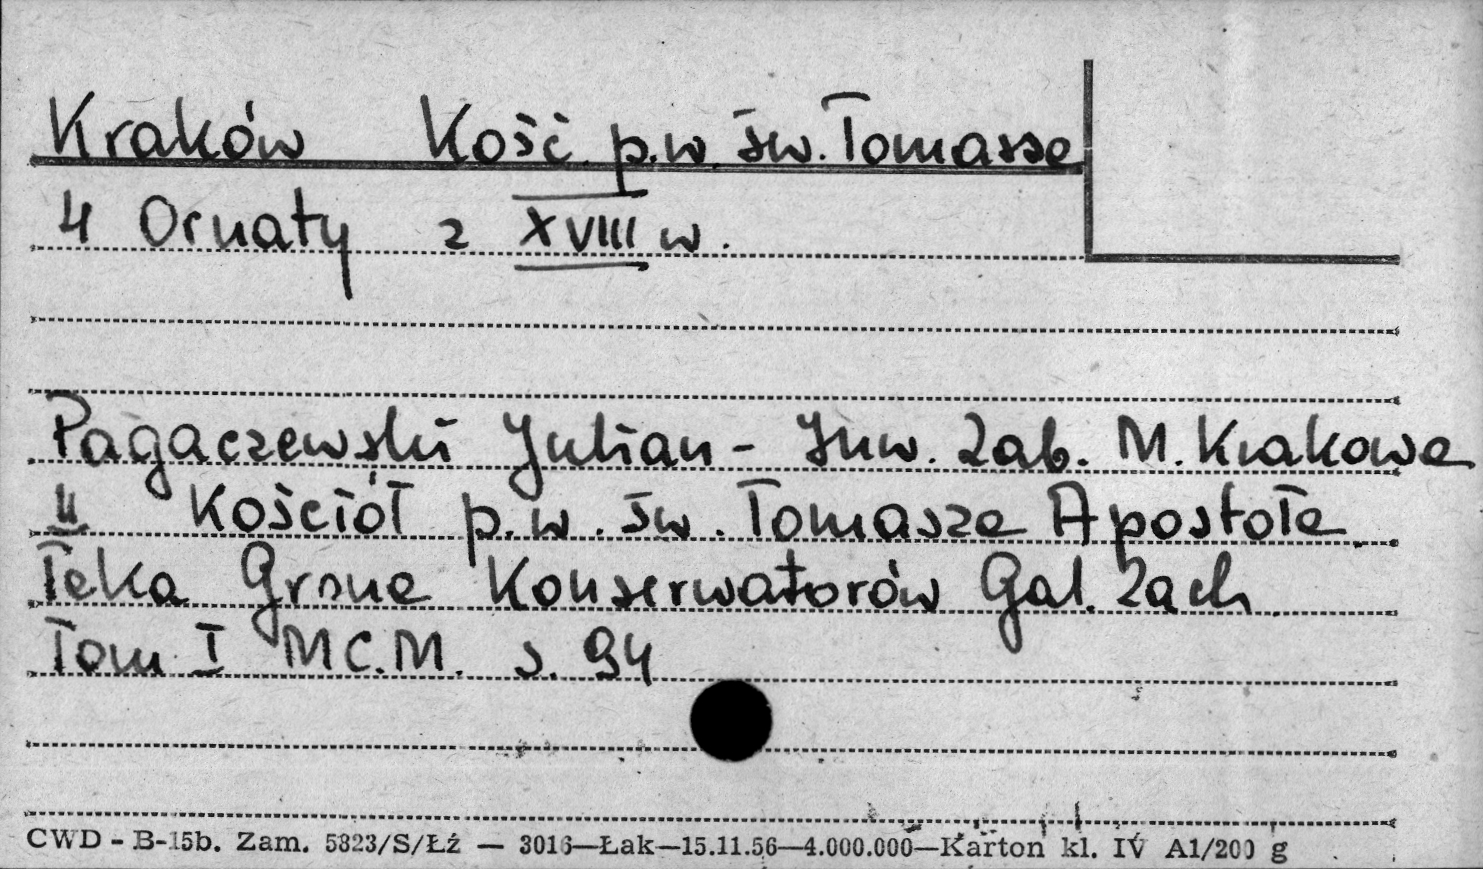 Kraków Kość. p.w. św. Tomasza
4 Ornaty z XVIII w.
Pagaczewski Julian - Inw. Zab. M. Krakowa
II Kościół p.w. św. Tomasza Apostoła.
Teka Grona Konserwatorów Gal. Zach.
Tom I MC.M. s. 94
CWD - B-15b. Zam. 5823/S/Łź — 3016—Łak—15.11.56—4.000.000—Karton kl. IV A1/200 g